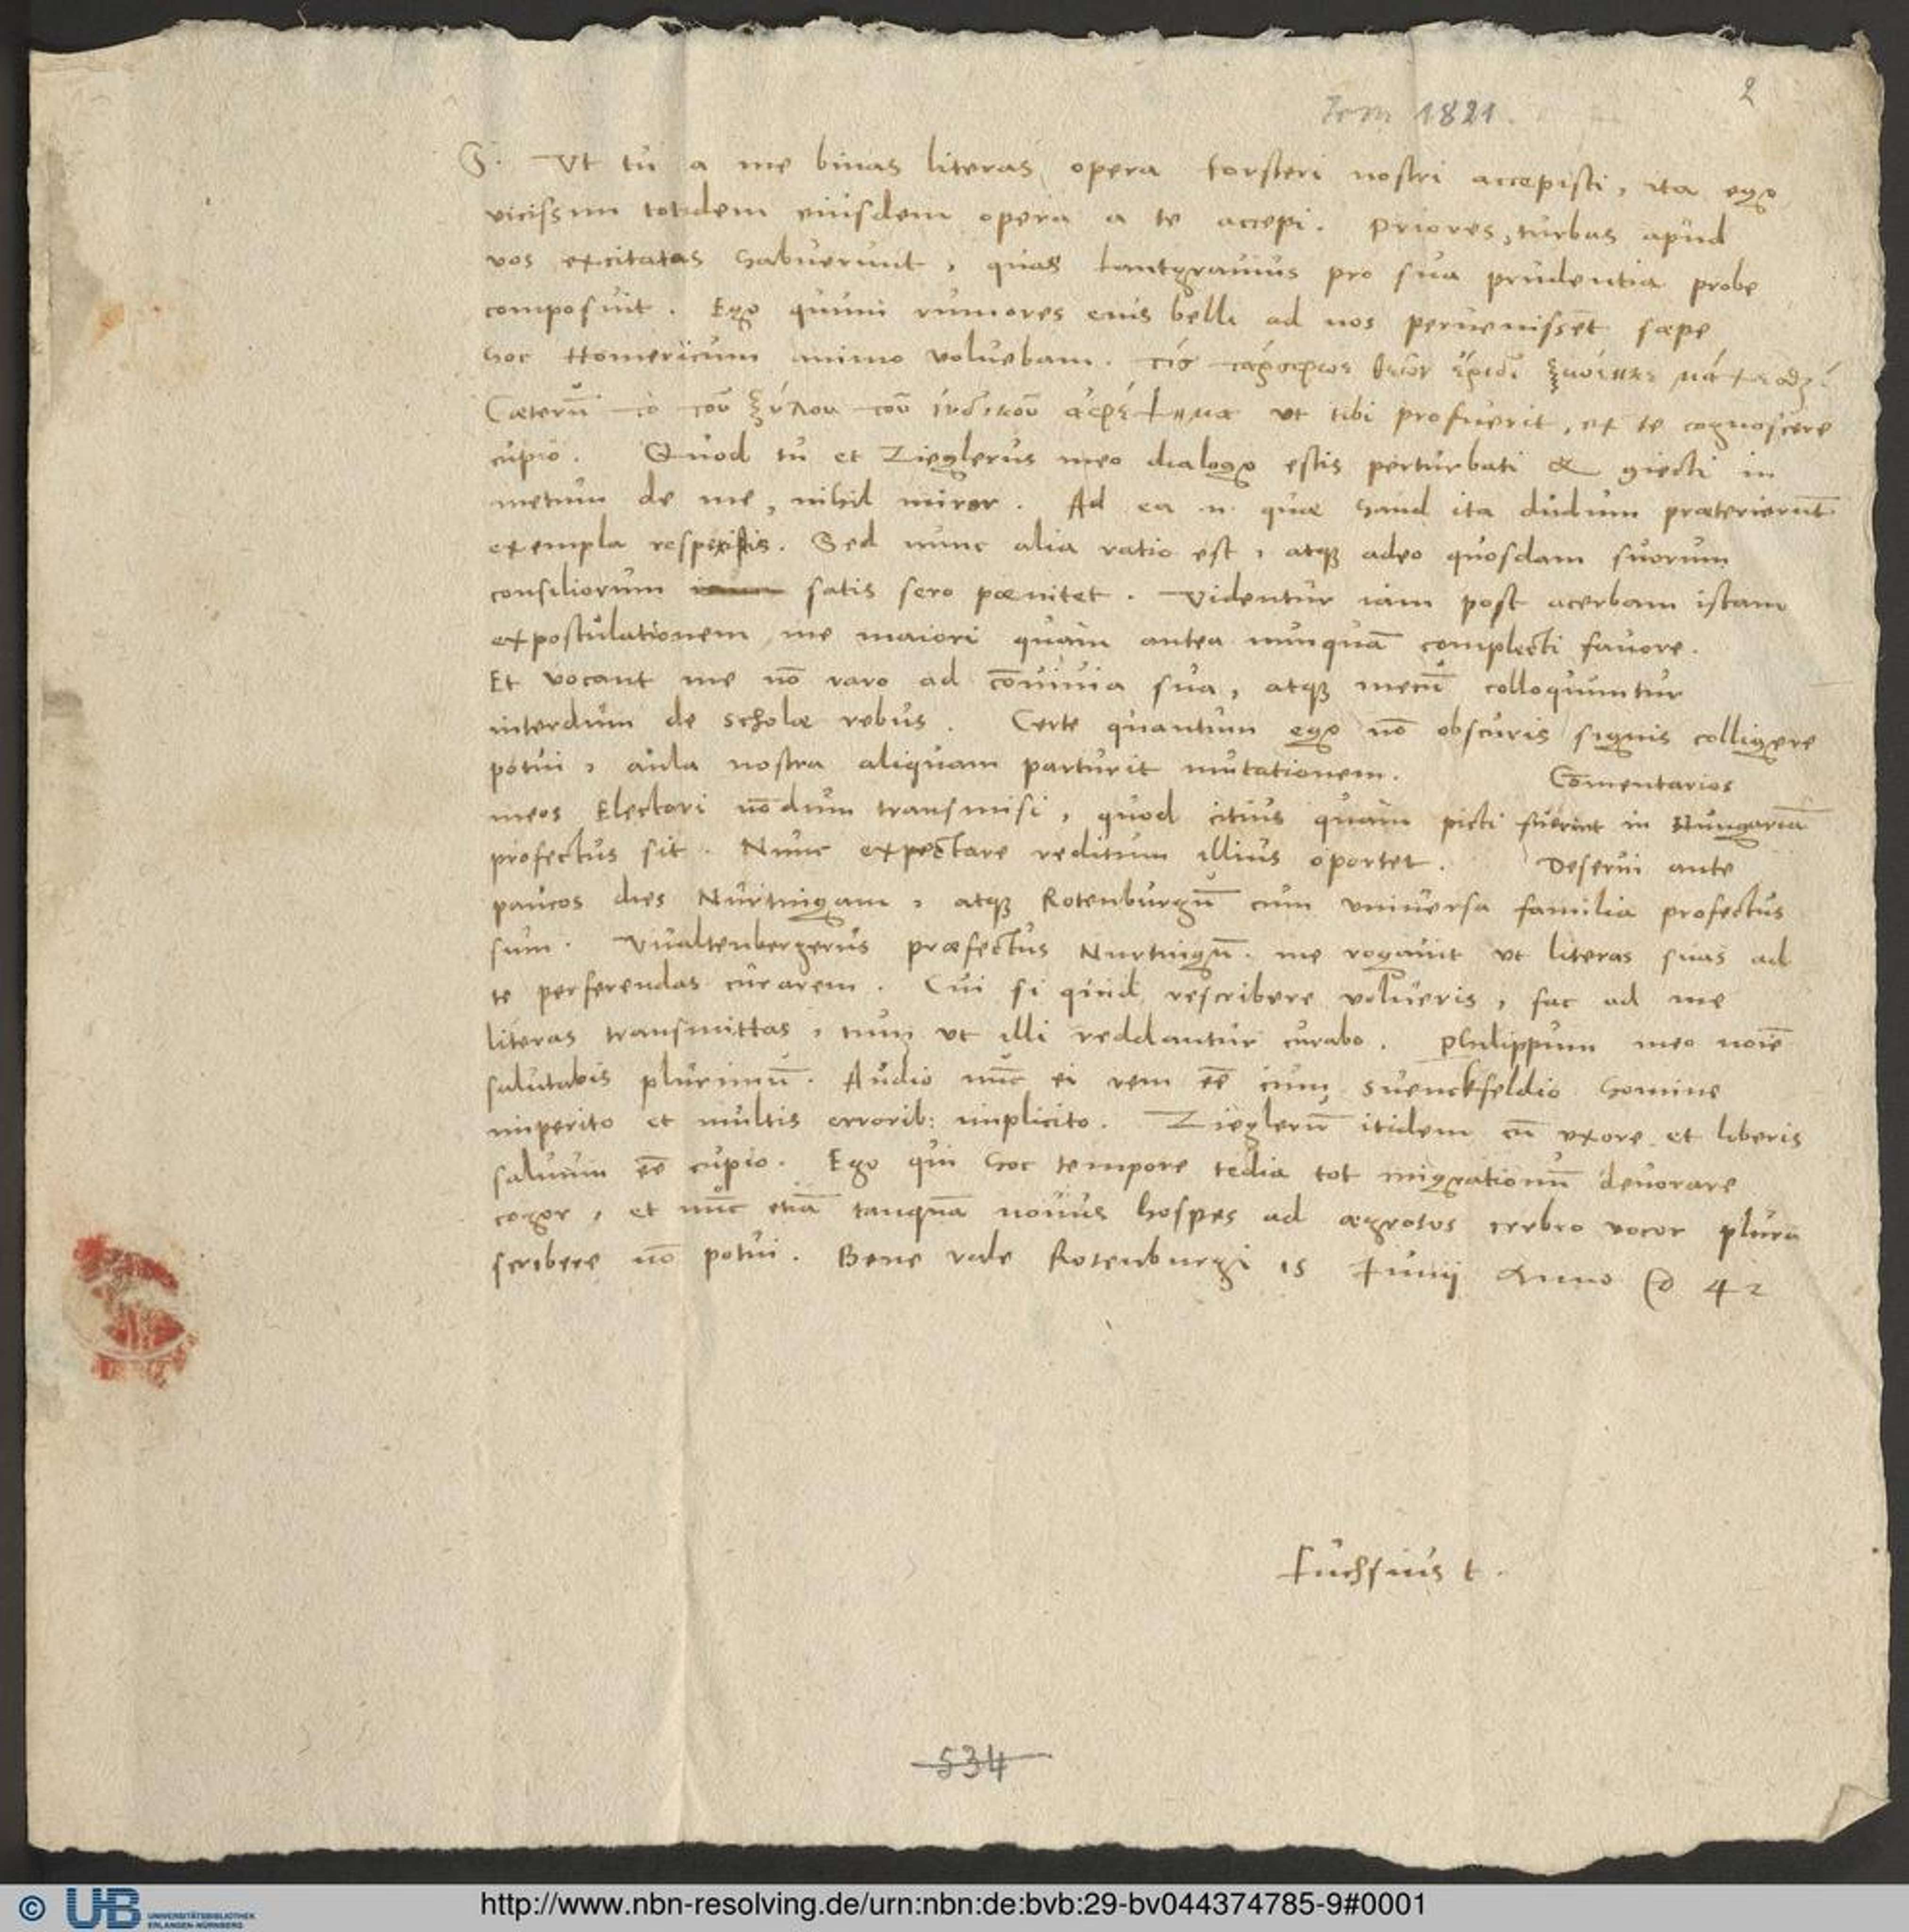 2
1821.
S. Ut tu a me binas literas opera Forsteri nostri accepisti, ita ego
vicissim totidem eiusdem opera a te accepi. Priores, turbas apud
vos excitatas habuerunt, quas Lantgravius pro sua prudentia probe
composuit. Ego quum rumores eius belli ad nos pervenissēt sæpe
hoc Homericum animo voluebam. τίς τ' ἄρ σφωε θεῶν ἔριδι ξυνέηκε μάχεσθαι
Cæterū τὸ τοῦ ξύλου τοῦ ἰνδικοῦ ἀφέψημα ut tibi profuerit, ex te cognoscere
cupio. Quod tu et Zieglerus meo dialogo estis perturbati & ꝯiecti in
metum de me, nihil miror. Ad ea .n. quæ haud ita dudum præterierūt
exempla respexistis. Sed nunc alia ratio est, atqꝫ adeo quosdam suorum
consiliorum satis sero pœnitet. Videntur iam post acerbam istam
expostulationem me maiori quam antea nunquā complecti favore.
Et vocant me nō raro ad cōvivia sua, atqꝫ mecū colloquuntur
interdum de scholæ rebus. Certe quantum ego nō obscuris signis colligere
potui, aula nostra aliquam parturit mutationem. Cōmentarios
meos Electori nōdum transmisi, quod citius quam picti fuerint in Hungariā
profectus sit. Nunc expectare reditum illius oportet. Deserui ante
paucos dies Nürtingam, atqꝫ Rotenburgū cum universa familia profectus
sum. Vualtenbergerus præfectus Nurtingū. me rogavit ut literas suas ad
te perferendas curarem. Cui si quid rescribere volueris, fac ad me
literas transmittas, tum ut illi reddantur curabo. Philippum meo noīe
salutabis plurimū. Audio nūc ei rem eē cum Suenckfeldio homine
imperito et multis errorib: implicito. Zieglerū itidem cū uxore et liberis
salvum eē cupio. Ego qui hoc tempore tedia tot migrationū devorare
cogor, et nūc etiā tanquā novus hospes ad ægrotos crebro vocor plura
scribere nō potui. Bene vale Rotenburgi 15 Junij Anno 42
Fuchsius t.
534
© UB UNIVERSITÄTSBIBLIOTHEK ERLANGEN-NÜRNBERG
http://www.nbn-resolving.de/urn:nbn:de:bvb:29-bv044374785-9#0001